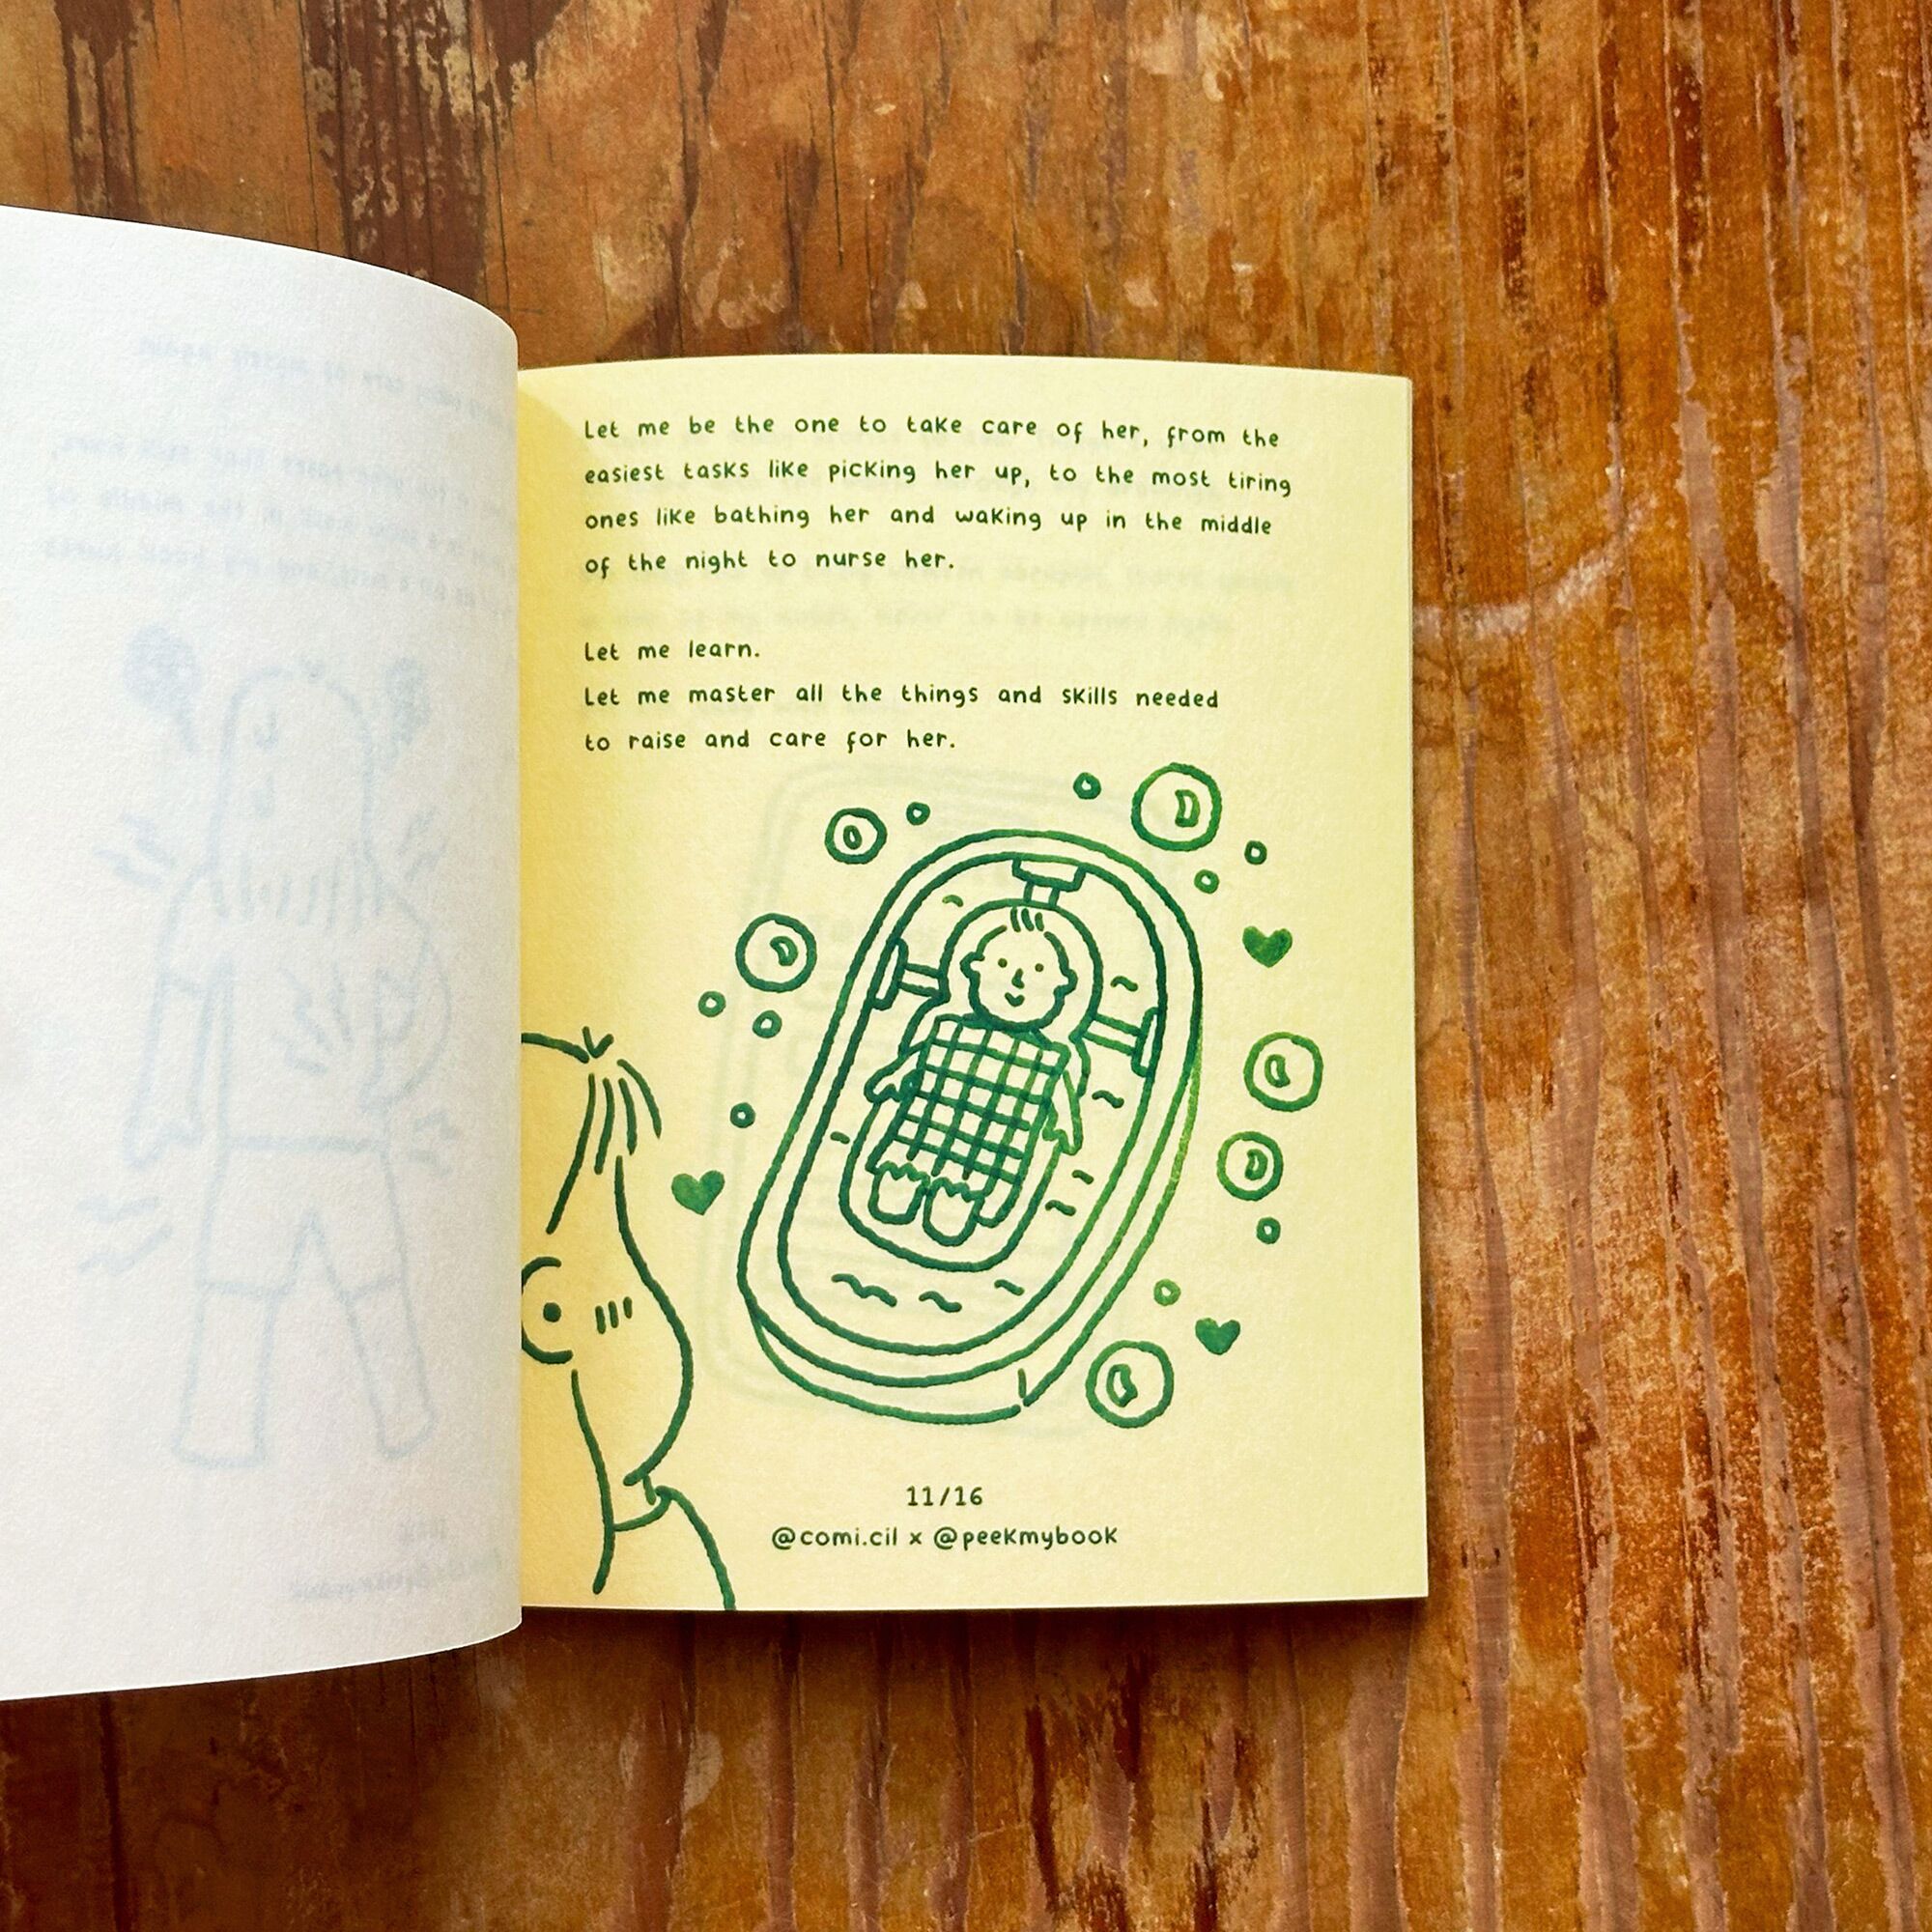 Let me be the one to take care of her, from the
easiest tasks like picking her up, to the most tiring
ones like bathing her and waking up in the middle
of the night to nurse her.
Let me learn.
Let me master all the things and skills needed
to raise and care for her.
11/16
@comi.cil x @peekmybook